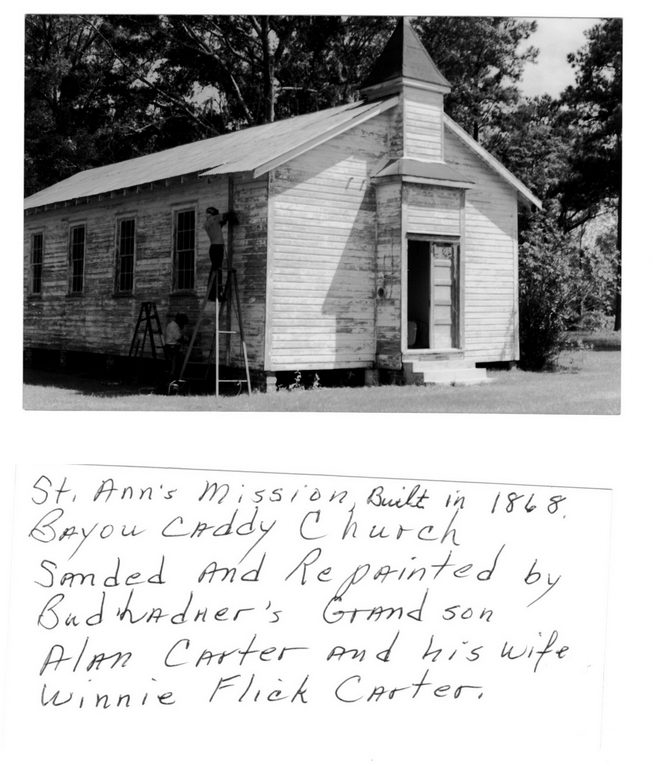 St. Ann's Mission, Built in 1868.
Bayou Caddy Church
Sanded and Repainted by
Bud Ladner's Grandson
Alan Carter and his wife
Winnie Flick Carter.